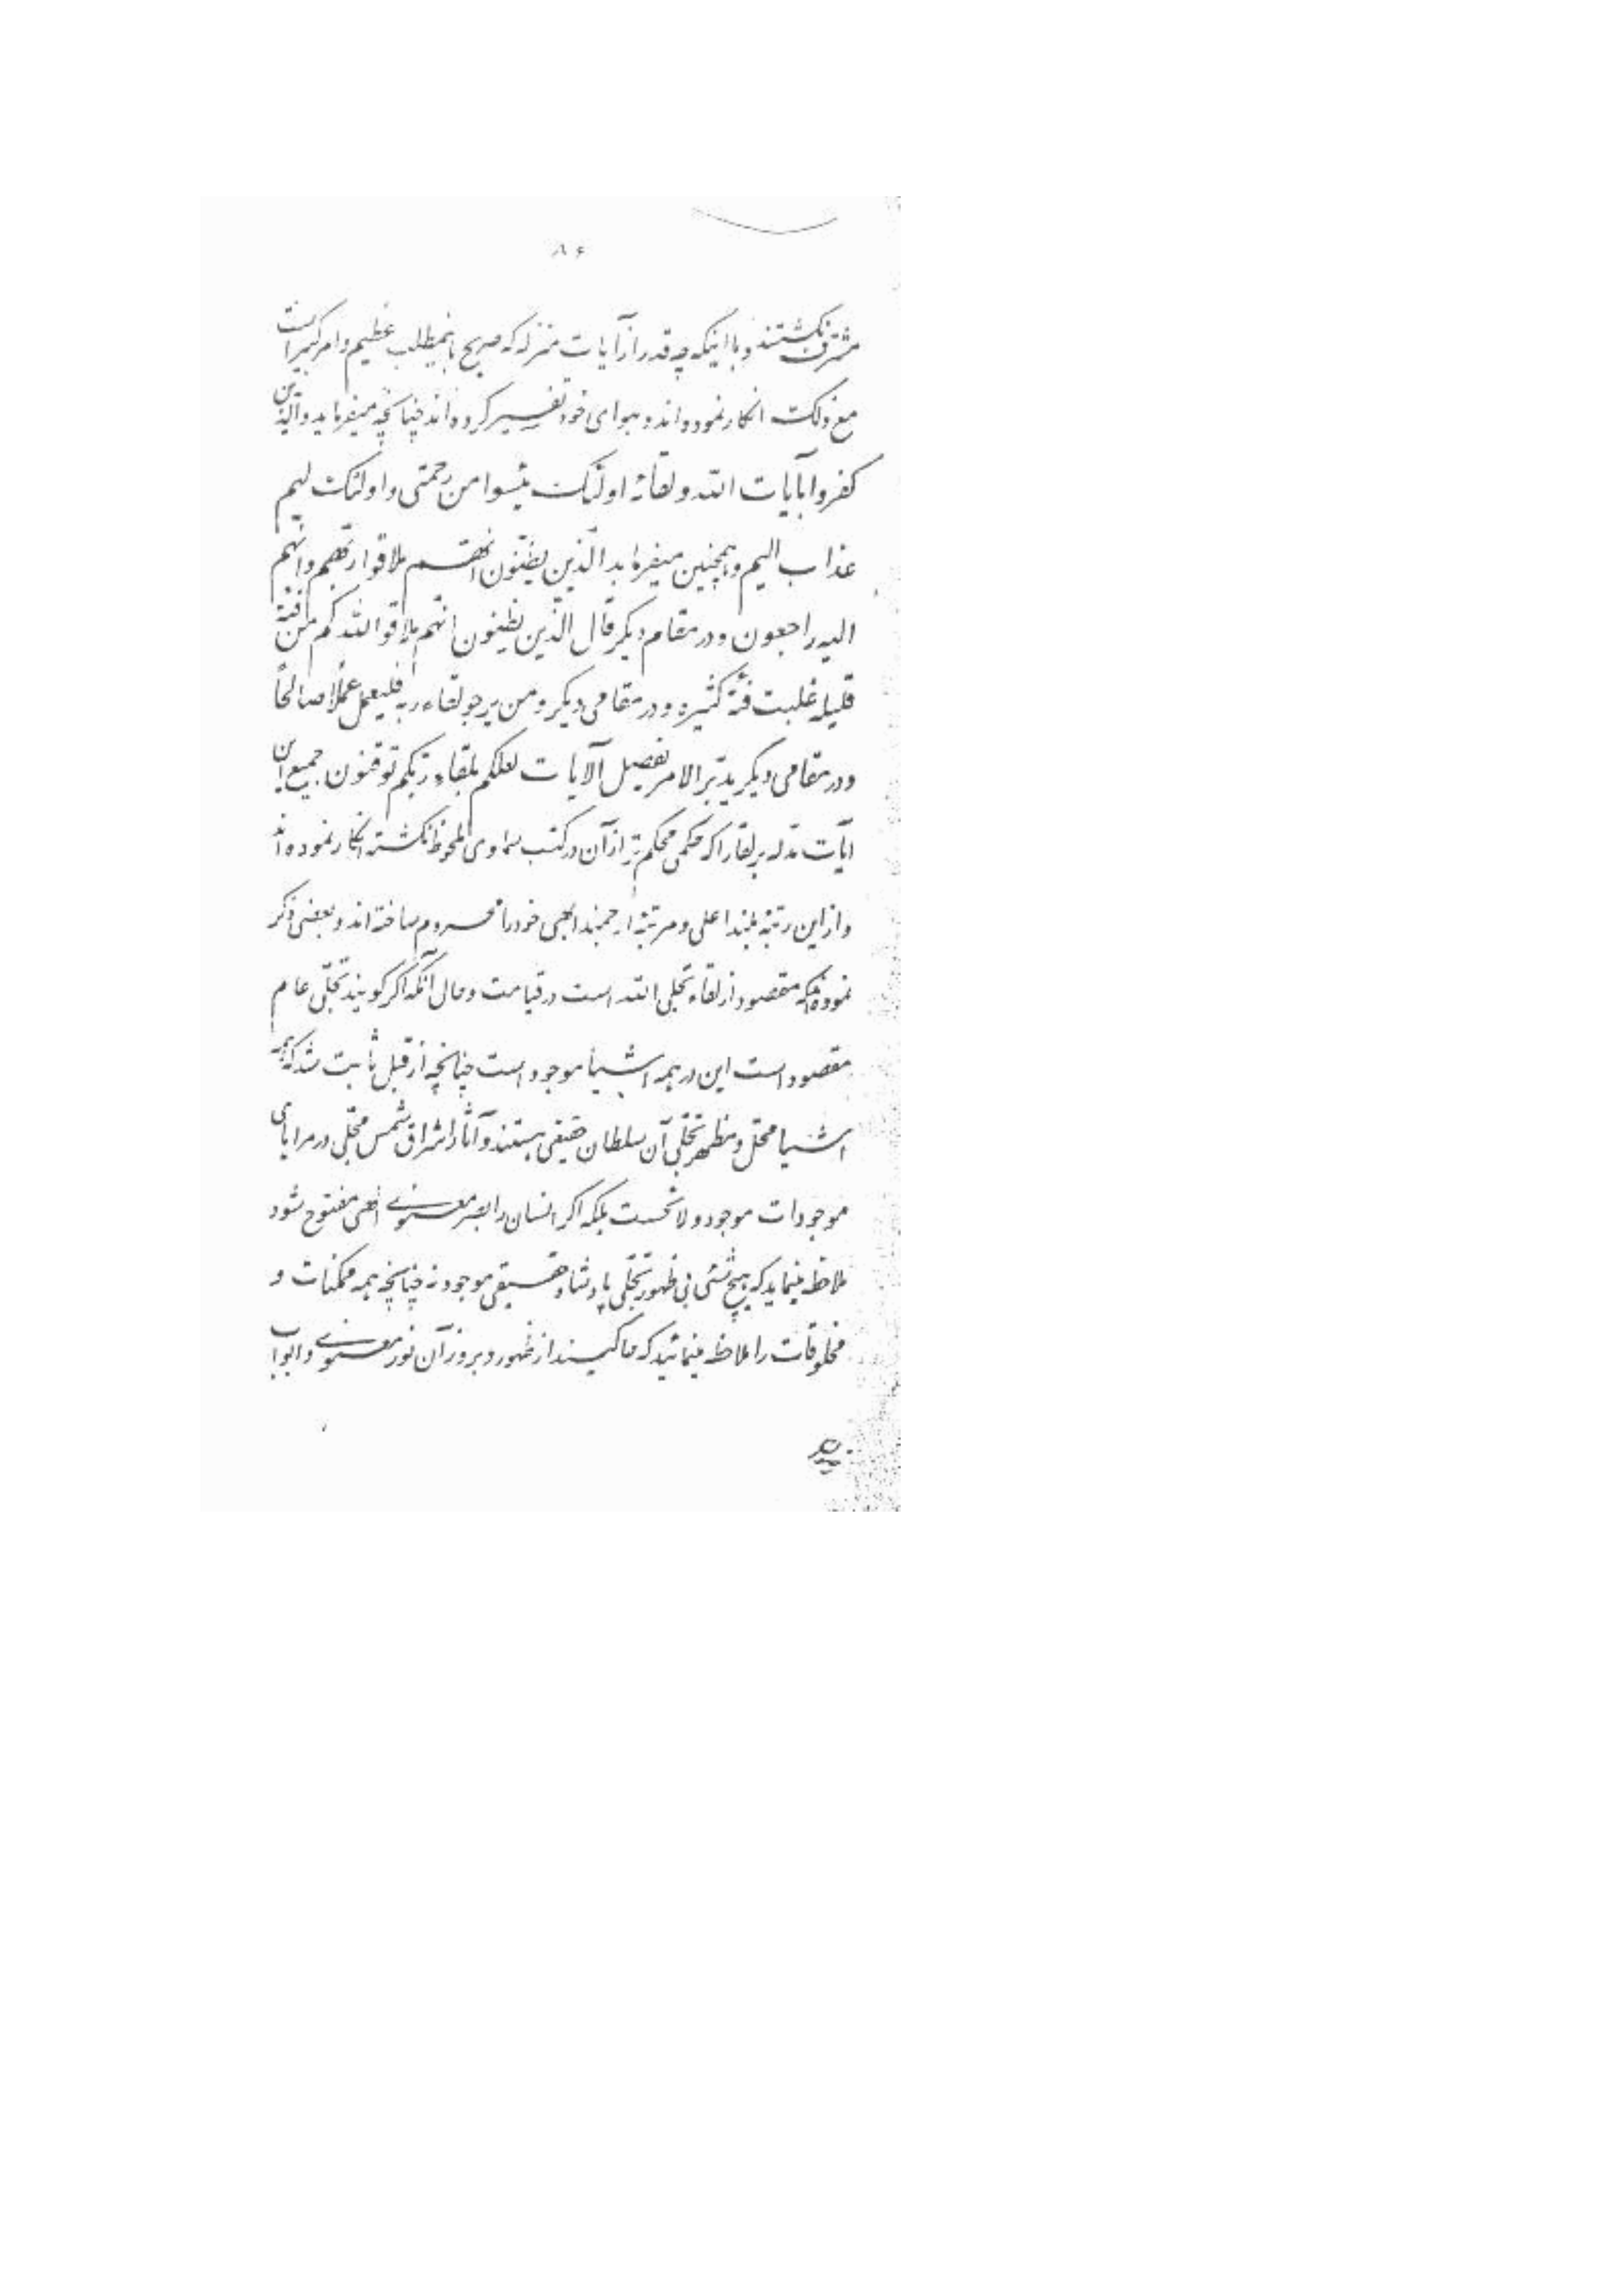 ۸۶
مشرّف نگشتند و با اینکه چه قدر از آیات منزله که صریح باینمطلب عظیم و امر کبیر است
مع ذلک انکار نموده‌اند و بهوای خود تفسیر کرده‌اند چنانچه میفرماید والّذین
کفروا بآیات الله و لقائه اولئک یئسوا من رحمتی و اولئک لهم
عذاب الیم و همچنین میفرماید الّذین یظنّون انّهم ملاقوا ربّهم و انّهم
الیه راجعون و در مقام دیگر قال الّذین یظنون انّهم ملاقوا الله کم من فئة
قلیله غلبت فئة کثیره و در مقامی دیگر و من یرجو لقاء ربه فلیعمل عملاً صالحاً
و در مقامی دیگر یدبّر الامر یفصل الآیات لعلکم بلقاء ربکم توقنون جمیع این
ایآت مدله بر لقا را که حکمی محکم‌تر از آن در کتب سماوی ملحوظ نگشته انکار نموده‌اند
و از این رتبهٔ بلند اعلی و مرتبهٔ ارجمند ابهی خود را محروم ساخته‌اند و بعضی ذکر
نموده‌اند که مقصود از لقاء تجلی الله است در قیامت و حال آنکه اگر گویند تجلّی عام
مقصود است این در همه اشیاء موجود است چنانچه از قبل ثابت شد که همه
اشیا محلّ و مظهر تجلّی آن سلطان حقیقی هستند و آثار اشراق شمس مجلّی در مرایای
موجودات موجود و لائحست بلکه اگر انسان را بصر معنوی الهی مفتوح شود
ملاحظه مینماید که هیچ شئی بی ظهور تجلّی پادشاه حقیقی موجود نه چنانچه همه ممکنات و
مخلوقات را ملاحظه مینمائید که حاکیند از ظهور و بروز آن نور معنوی و ابواب